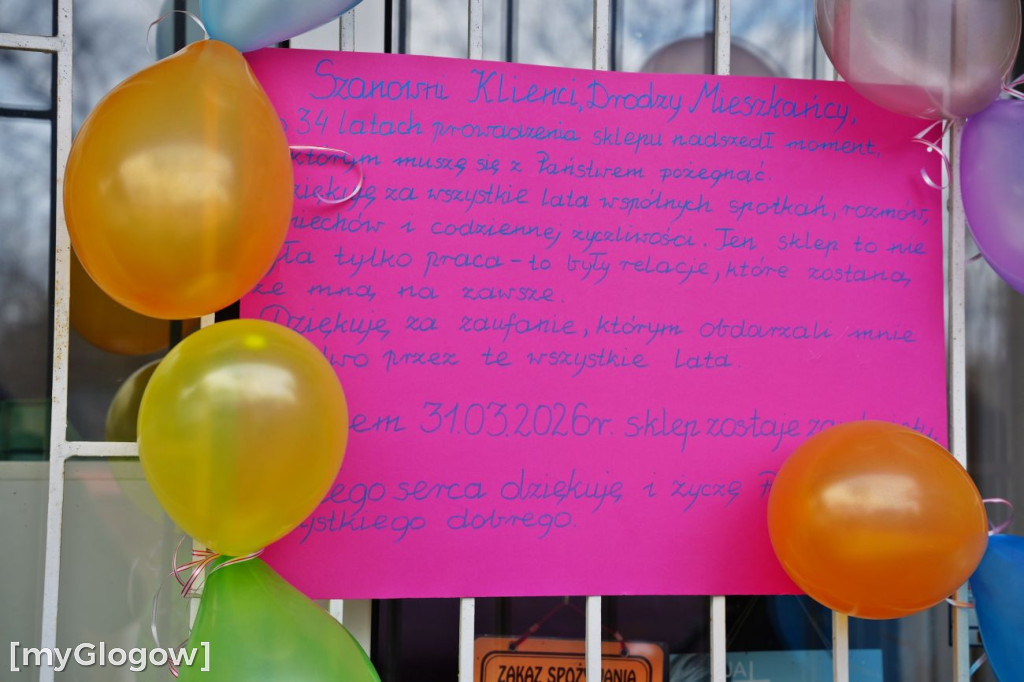 Szanowni Klienci, Drodzy Mieszkańcy,
34 latach prowadzenia sklepu nadszedł moment,
którym muszę się z Państwem pożegnać.
ziękuję za wszystkie lata wspólnych spotkań, rozmów,
miechów i codziennej życzliwości. Ten sklep to nie
yła tylko praca - to były relacje, które zostaną
ze mną na zawsze.
Dziękuję za zaufanie, którym obdarzali mnie
two przez te wszystkie lata.
em 31.03.2026r. sklep zostaje
ego serca dziękuję i życzę
ystkiego dobrego.
ZAKAZ SPOŻYWANIA
[myGlogow]